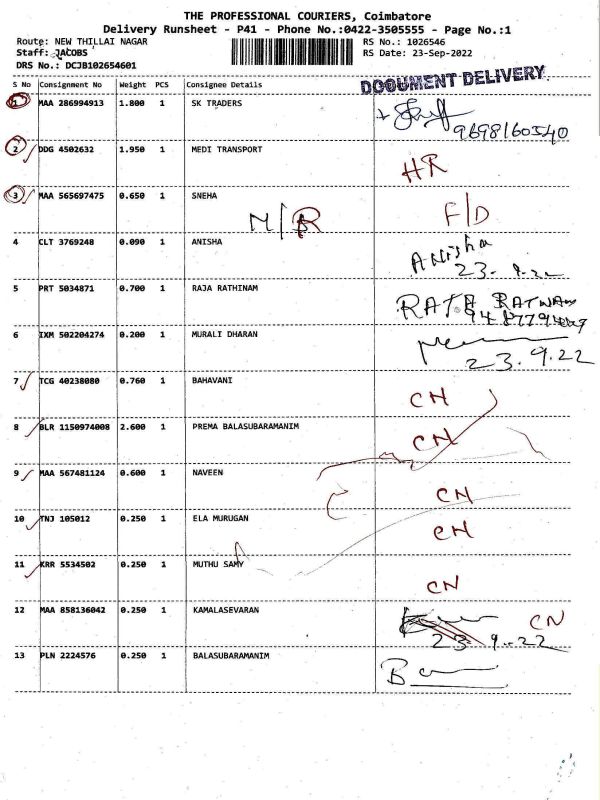 THE PROFESSIONAL COURIERS, Coimbatore
Delivery Runsheet - P41 - Phone No.:0422-3505555 - Page No.:1
Route: NEW THILLAI NAGAR RS No.: 1026546
Staff: JACOBS RS Date: 23-Sep-2022
DRS No.: DCJB102654601
DOCUMENT DELIVERY
S No Consignment No Weight PCS Consignee Details
1 MAA 286994913 1.800 1 SK TRADERS
9698160540
2 DDG 4502632 1.950 1 MEDI TRANSPORT HR
3 MAA 565697475 0.650 1 SNEHA F/D
4 CLT 3769248 0.090 1 ANISHA Anisha
23.9.22
5 PRT 5034871 0.700 1 RAJA RATHINAM
6 IXM 502204274 0.200 1 MURALI DHARAN
23.9.22
7 TCG 40238080 0.760 1 BAHAVANI CN
8 BLR 1150974008 2.600 1 PREMA BALASUBARAMANIM CN
9 MAA 567481124 0.600 1 NAVEEN CN
10 TNJ 105012 0.250 1 ELA MURUGAN CN
11 KRR 5534502 0.250 1 MUTHU SAMY CN
12 MAA 858136042 0.250 1 KAMALASEVARAN CN
23 9.22
13 PLN 2224576 0.250 1 BALASUBARAMANIM